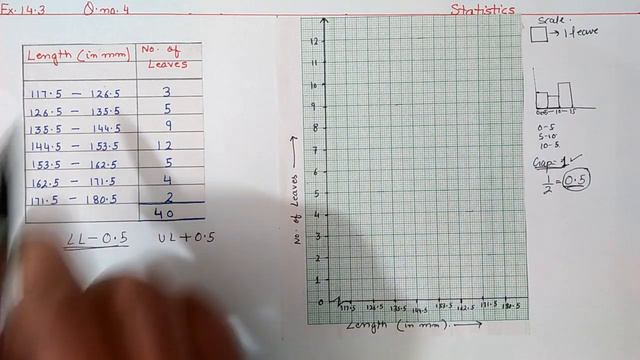 Ex. 14.3 Q. no. 4 Statistics
Length (in mm) No. of Leaves
117.5 - 126.5 3
126.5 - 135.5 5
135.5 - 144.5 9
144.5 - 153.5 12
153.5 - 162.5 5
162.5 - 171.5 4
171.5 - 180.5 2
40
LL - 0.5 UL + 0.5
No. of Leaves →
12
11
10
9
8
7
6
5
4
3
2
1
0
117.5 126.5 135.5 144.5 153.5 162.5 171.5 180.5
Length (in mm). →
Scale.
→ 1 leave
0-5
5-10
10-5.
Gap- 1 ✓
1/2 = 0.5